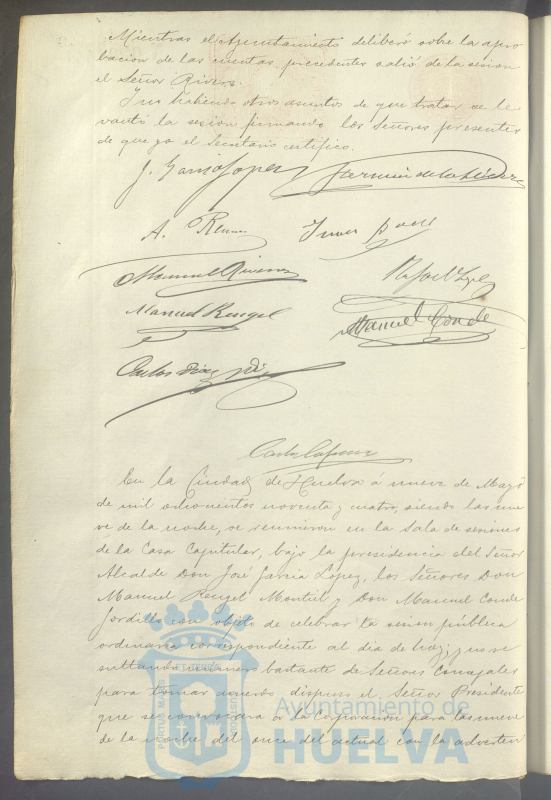 Mientras el Ayuntamiento deliberó sobre la apro
bacion de las cuentas precedentes salió de la sesion
el Señor Rivera.
Y no habiendo otros asuntos de que tratar se le
vantó la sesion firmando los Señores presentes
de que yo el Secretario certifico.
J. García Lopez
Fermín de la
A.
Juan
Manuel Rivera
Rafael Lopez
Manuel Rengel
Manuel Conde
Carlos Diaz
En la Ciudad de Huelva á nueve de Mayo
de mil ochocientos noventa y cuatro, siendo las nue
ve de la noche, se reunieron en la Sala de sesiones
de la Casa Capitular, bajo la presidencia del Señor
Alcalde Don José Garcia Lopez, los Señores Don
Manuel Rengel Montiel y Don Manuel Conde
Jordillo con objeto de celebrar la sesion pública
ordinaria correspondiente al dia de hoy; y no re
sultando número bastante de Señores Concejales
para tomar acuerdo dispuso el Señor Presidente
que se convocara á la Corporacion para las nueve
de la noche del once del actual con la adverten
Ayuntamiento de
HUELVA